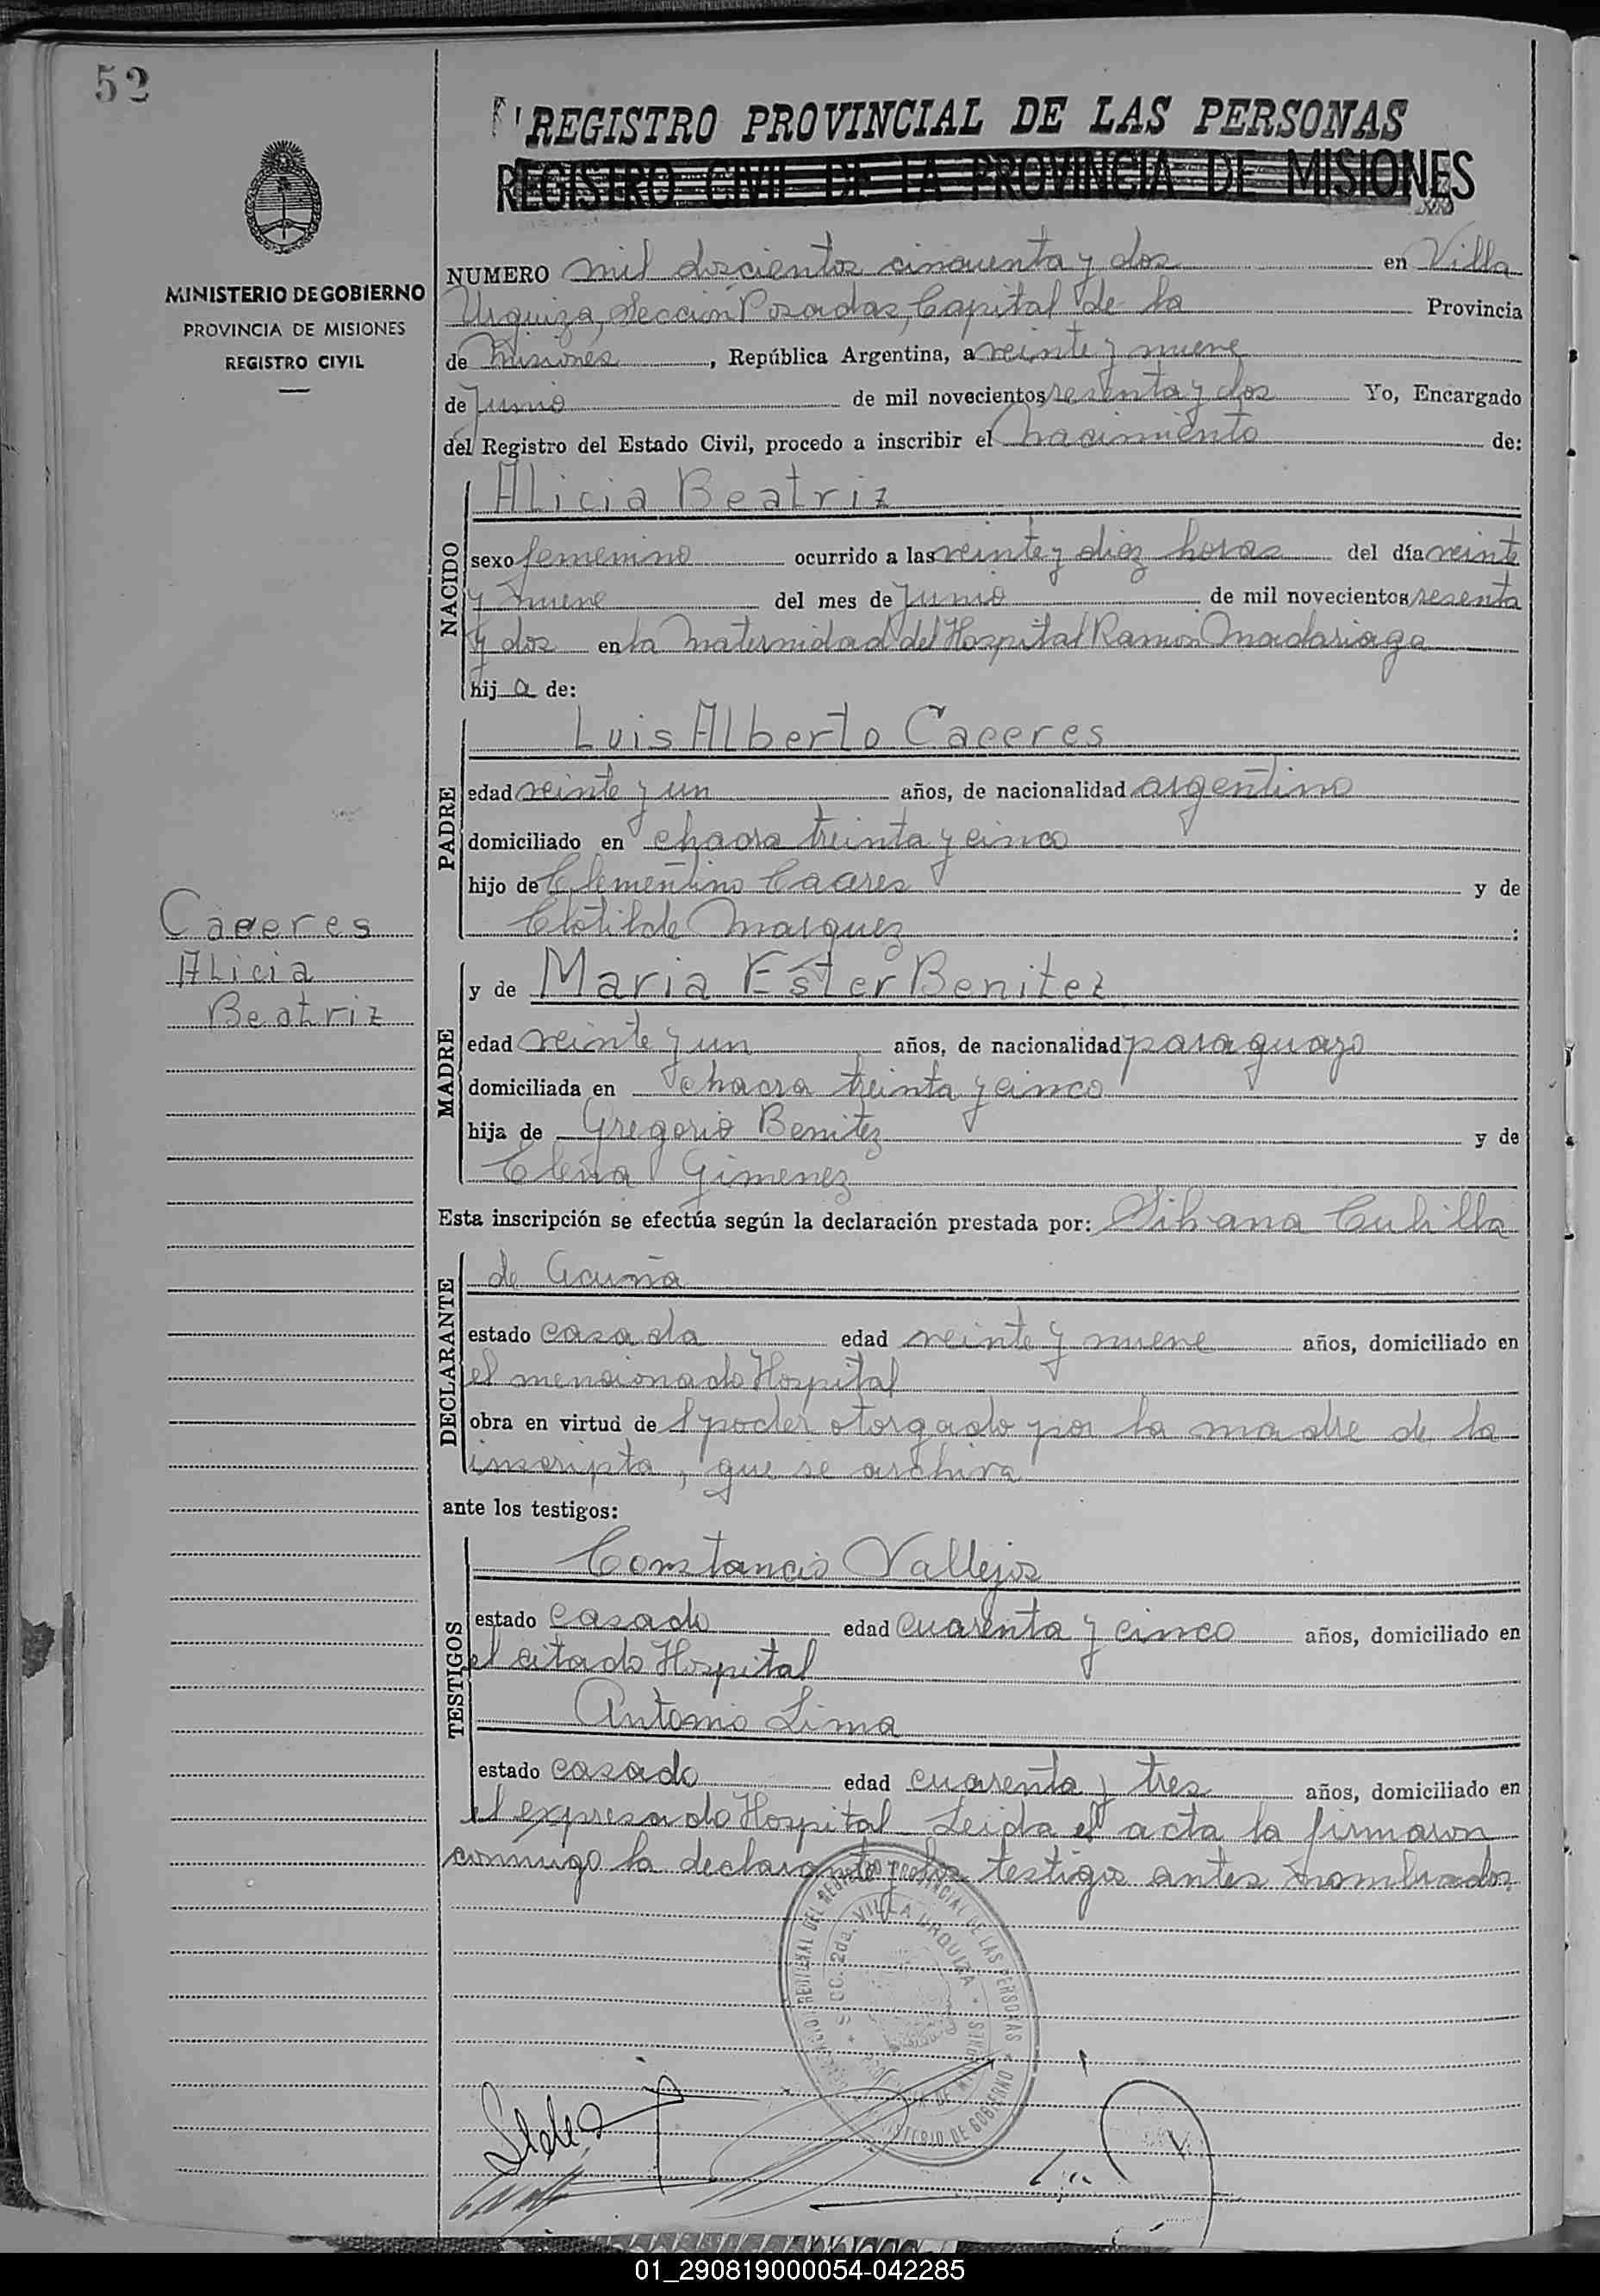 52
REGISTRO PROVINCIAL DE LAS PERSONAS
REGISTRO CIVIL DE LA PROVINCIA DE MISIONES
MINISTERIO DE GOBIERNO
PROVINCIA DE MISIONES
REGISTRO CIVIL
NUMERO mil doscientos cincuenta y dos en Villa
Urquiza, Sección Posadas, Capital de la Provincia
de Misiones, República Argentina, a veinte y nueve
de Junio de mil novecientos sesenta y dos Yo, Encargado
del Registro del Estado Civil, procedo a inscribir el nacimiento de:
NACIDO
Alicia Beatriz
sexo femenino ocurrido a las veinte y diez horas del día veinte
y nueve del mes de Junio de mil novecientos sesenta
y dos en la Maternidad del Hospital Ramon Madariaga
hij a de:
PADRE
Luis Alberto Caceres
edad veinte y un años, de nacionalidad argentino
domiciliado en chacra treinta y cinco
hijo de Clementino Caceres y de
Clotilde Marquez :
Caceres
Alicia
Beatriz
MADRE
y de Maria Ester Benitez
edad veinte y un años, de nacionalidad paraguayo
domiciliada en chacra treinta y cinco
hija de Gregorio Benitez y de
Elena Gimenez
Esta inscripción se efectúa según la declaración prestada por: Silvana Cubilla
DECLARANTE
de Acuña
estado casada edad veinte y nueve años, domiciliado en
el mencionado Hospital
obra en virtud de l poder otorgado por la madre de la
inscripta, que se archiva
ante los testigos:
TESTIGOS
Constancio Vallejos
estado casado edad cuarenta y cinco años, domiciliado en
el citado Hospital
Antonio Lima
estado casado edad cuarenta y tres años, domiciliado en
el expresado Hospital Leida el acta la firmaron
conmigo la declarante y los testigos antes nombrados
REGISTRO PROVINCIAL DE LAS PERSONAS
SECC. 2da. VILLA URQUIZA
PROVINCIA DE MISIONES
MINISTERIO DE GOBIERNO
01_290819000054-042285